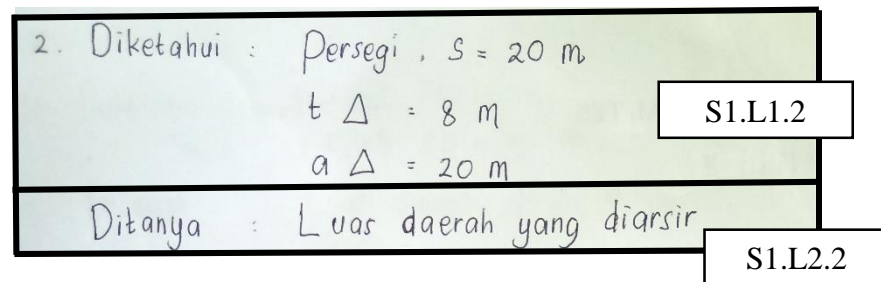 2. Diketahui : Persegi, S = 20 m
t △ = 8 m
S1.L1.2
a △ = 20 m
Ditanya : Luas daerah yang diarsir
S1.L2.2